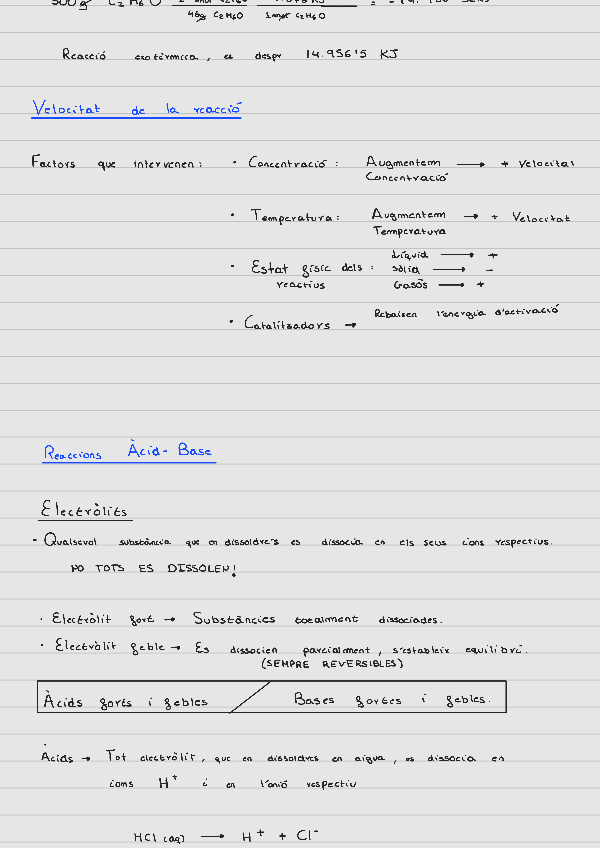 500g C2H6O
46g C2H6O 1mol C2H6O
Reacció exotèrmica, es despr 14.956'5 KJ
Velocitat de la reacció
Factors que intervenen: · Concentració: Augmentem → + Velocitat
Concentració
· Temperatura: Augmentem → + Velocitat
Temperatura
Líquid → +
· Estat físic dels: sòlid → -
reactius Gasós → +
· Catalitzadors → Rebaixen l'energia d'activació
Reaccions Àcid-Base
Electròlits
- Qualsevol substància que en dissoldre's es dissocia en els seus ions respectius.
NO TOTS ES DISSOLEN!
· Electròlit fort → Substàncies totalment dissociades.
· Electròlit feble → Es dissocien parcialment, s'estableix equilibri.
(SEMPRE REVERSIBLES)
Àcids forts i febles / Bases fortes i febles.
Àcids → Tot electròlit, que en dissoldres en aigua, es dissocia en
ions H+ i en l'anió respectiu
HCl (aq) → H+ + Cl-